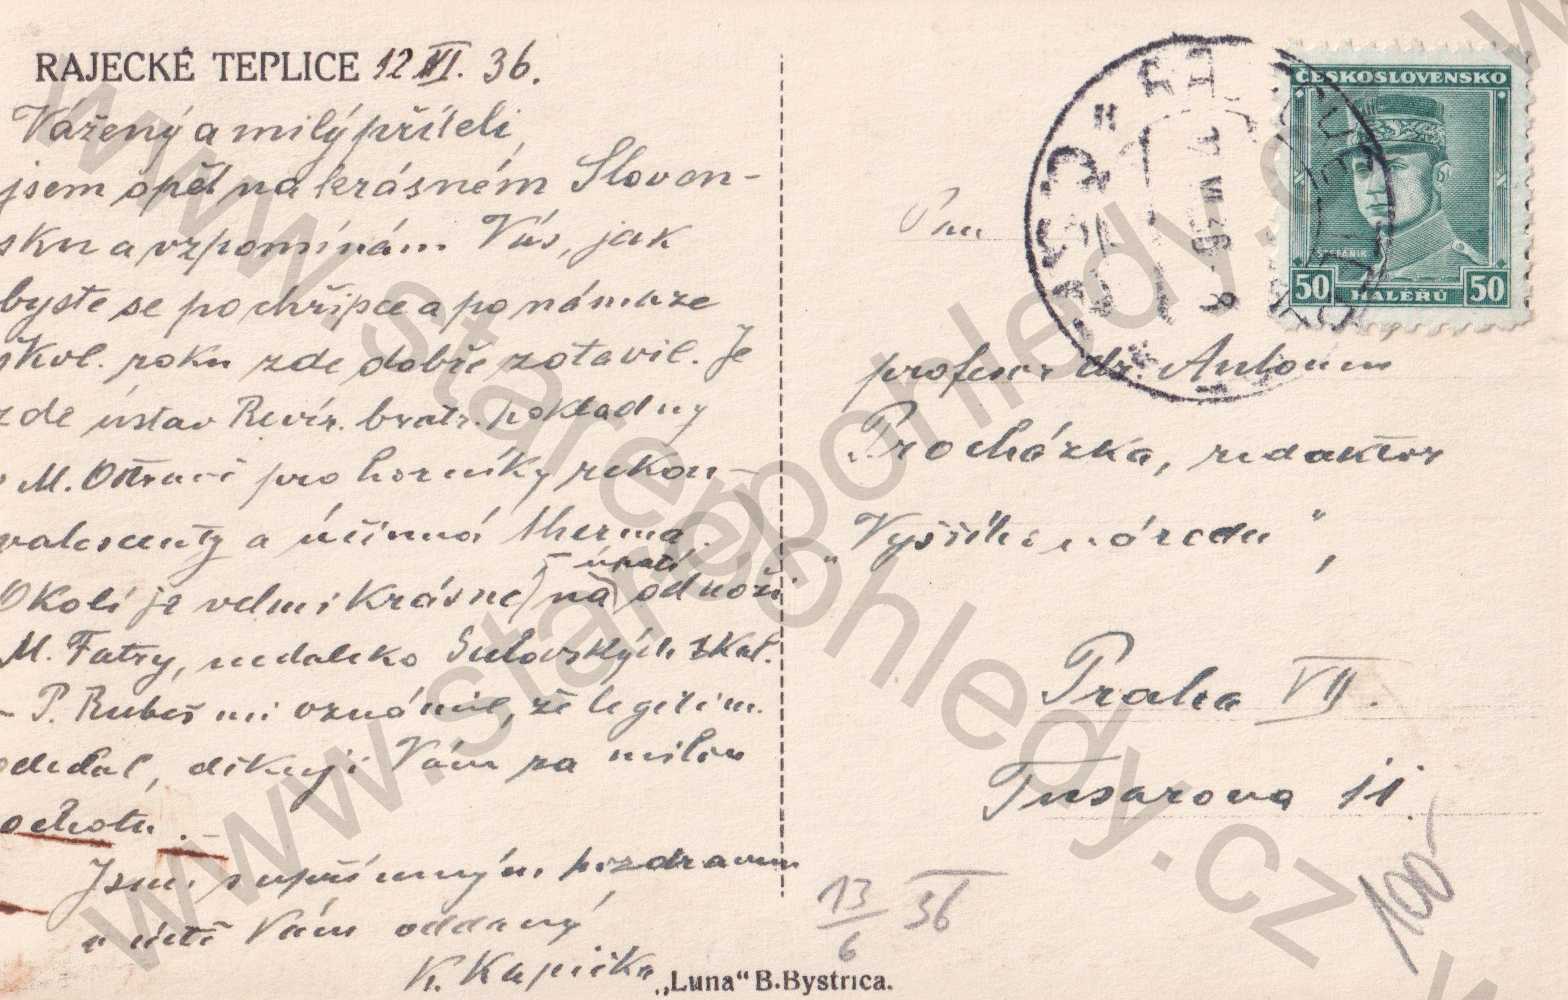 RAJECKÉ TEPLICE 12 VI. 36.
Vážený a milý příteli,
jsem opět na krásném Sloven-
sku a vzpomínám Vás, jak
byste se po chřipce a po námaze
škol. roku zde dobře zotavil. Je
zde ústav Revír. bratr. pokladny
M. Ostravě pro horníky rekon-
valescenty a účinná therma.
Okolí je velmi krásné, na úpatí odnoží
M. Fatry, nedaleko Sulovských skal.
- P. Rubeš mi oznámil, že legitim.
odedal, děkuji Vám za milou
ochotu. -
Jsem s upřímným pozdravem
a úctě Vám oddaný
K. Kapička
„Luna“ B.Bystrica.
ČESKOSLOVENSKO
ŠTEFÁNIK
50 HALÉŘŮ 50
Pan
profesor dr. Antonín
Procházka, redaktor
„Vyššího národu“,
Praha VII.
Tusarova 11.
13/6 36
100-
www.starepohledy.cz
www.starepohledy.cz